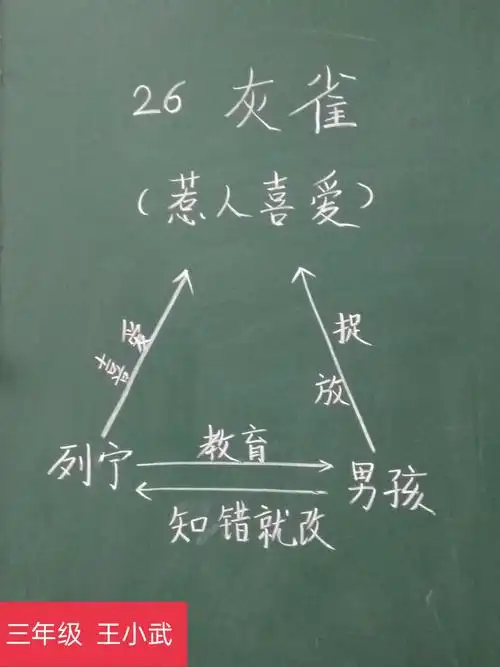 26 灰雀
(惹人喜爱)
喜爱
捉
放
列宁
教育
男孩
知错就改
三年级 王小武